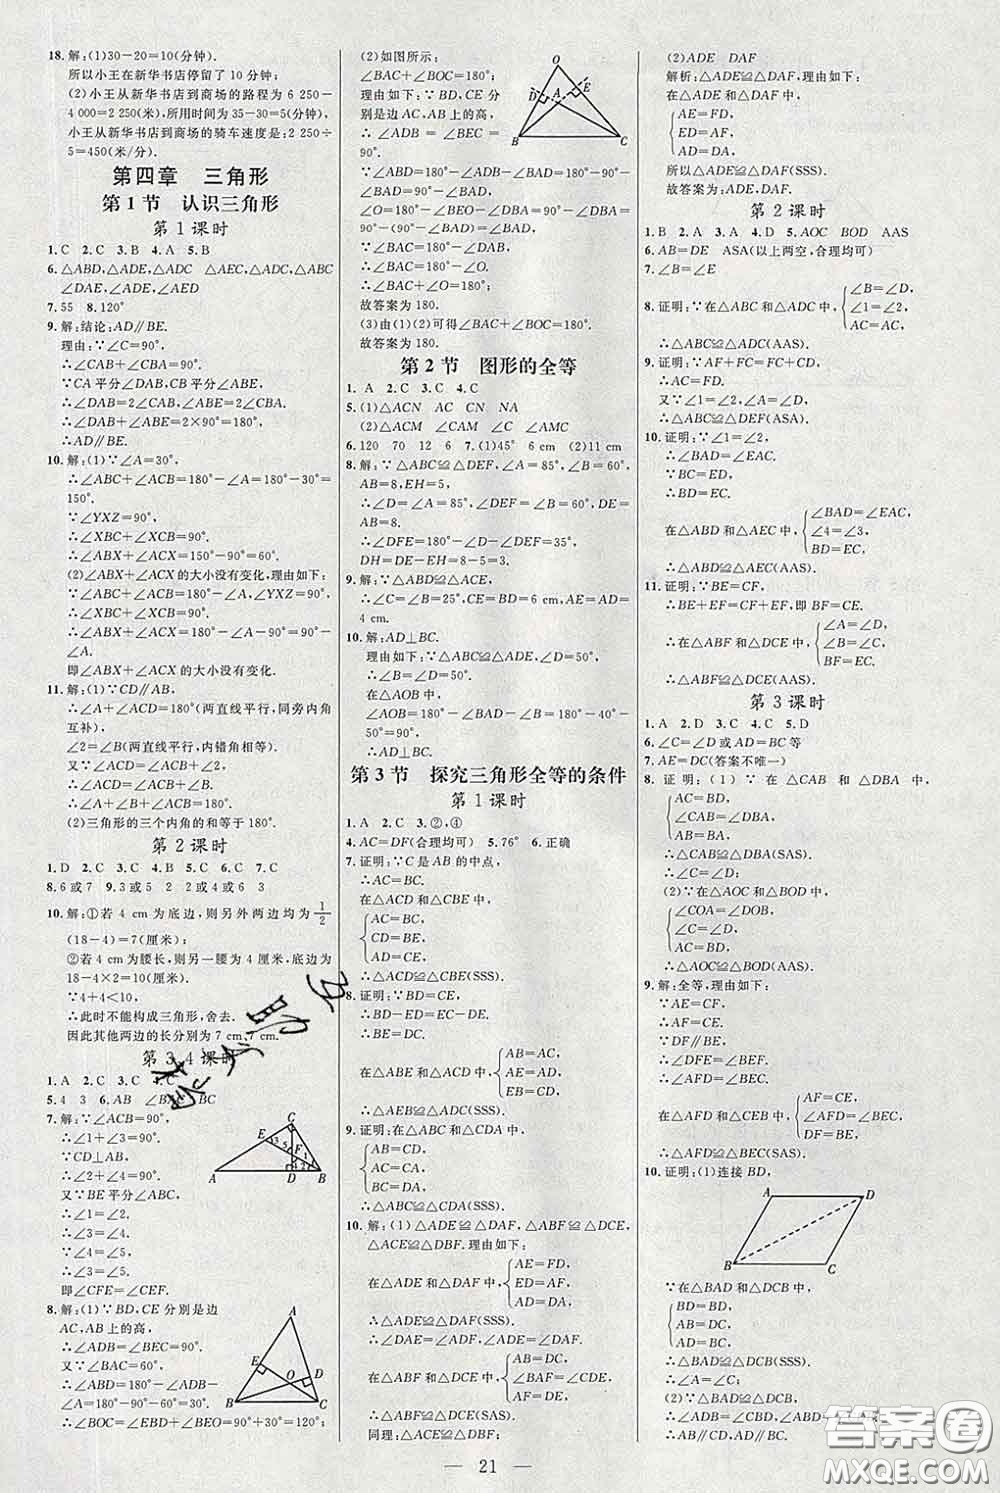 18.解:(1)30-20=10(分钟).
所以小王在新华书店停留了10分钟;
(2)小王从新华书店到商场的路程为6 250-
4 000=2 250(米),所用时间为35-30=5(分钟),
小王从新华书店到商场的骑车速度是:2 250÷
5=450(米/分).
第四章 三角形
第1节 认识三角形
第1课时
1.C 2.C 3.C 4.A 5.B
6.△ABD,△ADE,△ADC △AEC,△ADC,△ABC
∠DAE,∠ADE,∠AED
7.55 8.120°
9.解:结论:AD∥BE.
理由:∵∠C=90°,
∴∠CAB+∠CBA=90°.
∵CA平分∠DAB,CB平分∠ABE,
∴∠DAB=2∠CAB,∠ABE=2∠CBA.
∴∠DAB+∠ABE=2×90°=180°.
∴AD∥BE.
10.解:(1)∵∠A=30°,
∴∠ABC+∠ACB=180°-∠A=180°-30°=
150°.
∵∠YXZ=90°,
∴∠XBC+∠XCB=90°.
∴∠ABX+∠ACX=150°-90°=60°.
(2)∠ABX+∠ACX的大小没有变化,理由如下:
∵∠ABC+∠ACB=180°-∠A,∠YXZ=90°,
∴∠XBC+∠XCB=90°.
∴∠ABX+∠ACX=180°-∠A-90°=90°-
∠A.
即∠ABX+∠ACX的大小没有变化.
11.解:(1)∵CD∥AB,
∴∠A+∠ACD=180°(两直线平行,同旁内角
互补),
∠2=∠B(两直线平行,内错角相等).
又∵∠ACD=∠1+∠2,
∴∠A+∠1+∠2=180°.
∴∠A+∠B+∠1=180°.
(2)三角形的三个内角的和等于180°.
第2课时
1.D 2.C 3.A 4.B 5.C 6.C 7.C
8.6或7 9.3或5 2 2或4或6 3
10.解:①若4 cm为底边,则另外两边均为1/2
(18-4)=7(厘米);
②若4 cm为腰长,则另一腰为4厘米,底边为
18-4×2=10(厘米).
∵4+4<10,
∴此时不能构成三角形,舍去.
因此其他两边的长分别为7 cm,7 cm.
第3,4课时
1.A 2.C 3.C 4.C
5.4 3 6.AB ∠BAC BC
7.解:∵∠ACB=90°,
∴∠1+∠3=90°.
∵CD⊥AB,
∴∠2+∠4=90°.
又∵BE平分∠ABC,
∴∠1=∠2.
∴∠3=∠4.
∵∠4=∠5,
∴∠3=∠5.
即∠CFE=∠CEF.
C
E
3
5
F
1
4
2
A
D
B
8.解:(1)∵BD,CE分别是边
AC,AB上的高,
∴∠ADB=∠BEC=90°.
又∵∠BAC=60°,
∴∠ABD=180°-∠ADB-
∠A=180°-90°-60°=30°.
∴∠BOC=∠EBD+∠BEO=90°+30°=120°;
A
E
O
D
B
C
(2)如图所示.
∠BAC+∠BOC=180°.
理由如下:∵BD,CE分
别是边AC,AB上的高,
∴∠ADB=∠BEC=
90°.
O
D
A
E
B
C
∵∠BAC=180°-∠ABD-∠ADB=180°-
90°-∠ABD=90°-∠ABD,
∠O=180°-∠BEO-∠DBA=180°-
90°-∠ABD=90°-∠ABD,
∴∠BAC=180°-∠O.
∴∠BAC+∠O=180°.
故答案为180.
(3)由(1)(2)可得∠BAC+∠BOC=180°.
故答案为180.
第2节 图形的全等
1.A 2.C 3.C 4.C
5.(1)△ACN AC CN NA
(2)△ACM ∠CAM ∠C ∠AMC
6.120 70 12 6 7.(1)45° 6 cm (2)11 cm
8.解:∵△ABC≌△DEF,∠A=85°,∠B=60°,
AB=8,EH=5,
∴∠D=∠A=85°,∠DEF=∠B=60°,DE=
AB=8.
∴∠DFE=180°-∠D-∠DEF=35°,
DH=DE-EH=8-5=3.
9.解:∵△ABD≌△ACE,
∴∠C=∠B=25°,CE=BD=6 cm,AE=AD=
4 cm.
10.解:AD⊥BC.
理由如下:∵△ABC≌△ADE,∠D=50°,
∴∠B=∠D=50°.
在△AOB中,
∠AOB=180°-∠BAD-∠B=180°-40°-
50°=90°,
∴AD⊥BC.
第3节 探究三角形全等的条件
第1课时
1.A 2.C 3.②,④
4.AC=DF(合理均可) 5.76° 6.正确
7.证明:∵C是AB的中点,
∴AC=BC.
在△ACD和△CBE中,
AC=BC,
CD=BE,
AD=CE,
∴△ACD≌△CBE(SSS).
8.证明:∵BD=CE,
∴BD-ED=CE-ED.
∴BE=DC.
在△ABE和△ACD中,
AB=AC,
AE=AD,
BE=CD,
∴△AEB≌△ADC(SSS).
9.证明:在△ABC和△CDA中,
AB=CD,
AC=CA,
BC=DA,
∴△ABC≌△CDA(SSS).
10.解:(1)△ADE≌△DAF,△ABF≌△DCE,
△ACE≌△DBF.理由如下:
在△ADE和△DAF中,
AE=DF,
ED=AF,
AD=DA,
∴△ADE≌△DAF(SSS).
∴∠DAE=∠ADF,∠ADE=∠DAF.
在△ABF和△DCE中,
AB=DC,
∠BAF=∠CDE,
AF=DE,
∴△ABF≌△DCE(SAS).
同理:△ACE≌△DBF(SAS);
(2)ADE DAF
解析:△ADE≌△DAF,理由如下:
在△ADE和△DAF中,
AE=FD,
ED=AF,
AD=DA,
所以△ADE≌△DAF(SSS).
故答案为:ADE,DAF.
第2课时
1.B 2.A 3.A 4.D 5.AOC BOD AAS
6.AB=DE ASA(以上两空,合理均可)
7.∠B=∠E
8.证明:∵在△ABC和△ADC中,
∠B=∠D,
∠1=∠2,
AC=AC,
∴△ABC≌△ADC(AAS).
9.证明:∵AF+FC=FC+CD,
∴AC=FD.
又∵∠1=∠2,∠A=∠D,
∴△ABC≌△DEF(AAS).
10.证明:∵∠1=∠2,
∴∠BAD=∠EAC.
∵BC=ED,
∴BD=EC.
在△ABD和△AEC中,
∠BAD=∠EAC,
∠4=∠3,
BD=EC,
∴△ABD≌△AEC(AAS).
11.证明:∵BE=CF,
∴BE+EF=CF+EF,即BF=CE.
∴在△ABF和△DCE中,
∠A=∠D,
∠B=∠C,
BF=EC,
∴△ABF≌△DCE(AAS).
第3课时
1.A 2.D 3.C 4.C 5.D
6.∠C=∠D或AD=BC等
7.AE=DC(答案不唯一)
8.证明:(1)∵在△CAB和△DBA中,
AC=BD,
∠CAB=∠DBA,
AB=BA,
∴△CAB≌△DBA(SAS).
(2)∵在△AOC和△BOD中,
∠COA=∠DOB,
∠C=∠D,
AC=BD,
∴△AOC≌△BOD(AAS).
9.解:全等,理由如下:
∵AE=CF,
∴AF=CE.
∵DF∥BE,
∴∠DFE=∠BEF.
∴∠AFD=∠BEC.
在△AFD和△BEC中,
AF=CE,
∠AFD=∠BEC,
DF=BE,
∴△AFD≌△BEC(SAS).
10.证明:(1)连接BD,
A
D
B
C
∵在△BAD和△DCB中,
BD=BD,
AB=DC,
AD=BC,
∴△BAD≌△DCB(SSS).
∴∠A=∠C;
(2)∵△BAD≌△DCB,
∴∠ADB=∠CBD.
∴AD∥BC.
21
答案圈
MXQE.COM